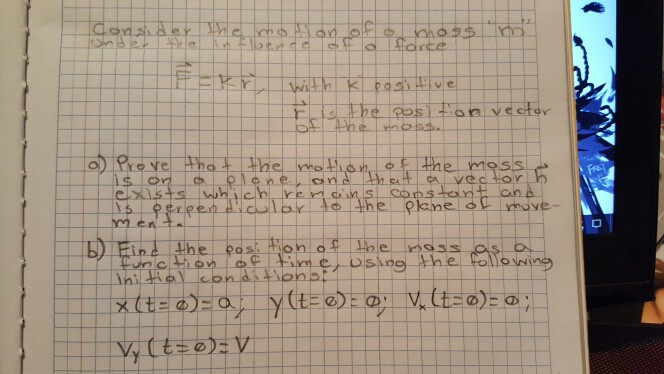 Consider the motion of a mass "m"
under the influence of a force
F⃗ = k r⃗, with k positive
r⃗ is the position vector
of the mass.
a) Prove that the motion of the mass
is on a plane, and that a vector h⃗
exists which remains constant and
is perpendicular to the plane of move-
ment.
b) Find the position of the mass as a
function of time, using the following
initial conditions:
x(t=0)=a; y(t=0)=0; Vx(t=0)=0;
Vy(t=0)=V